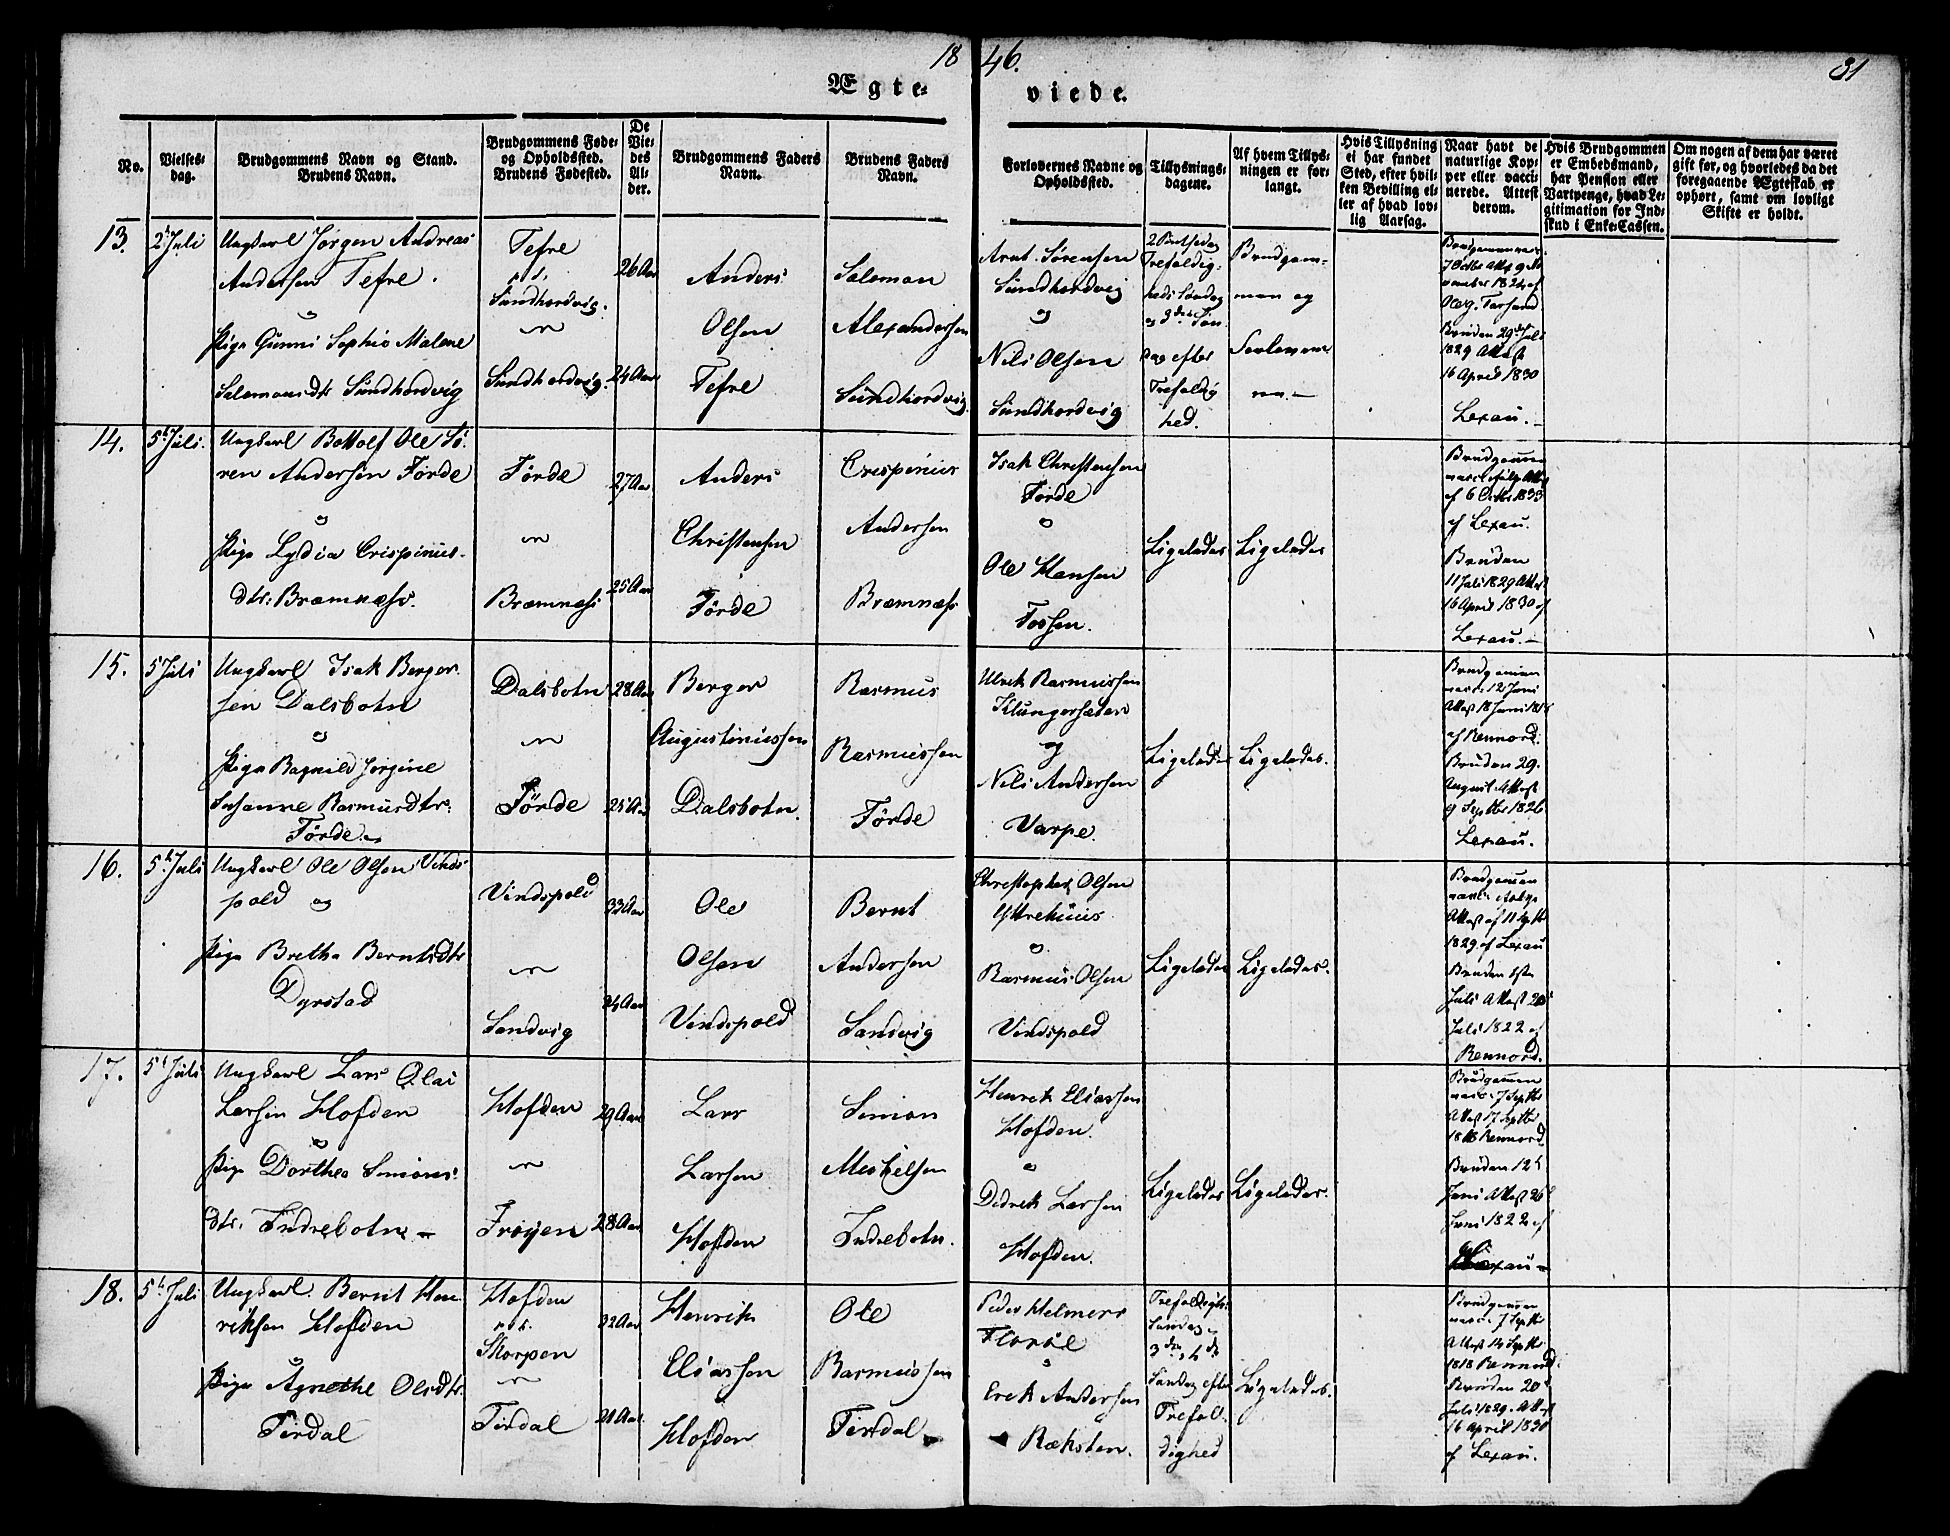 18 46. 31
Ægte- viede.
No.
Vielses-
dag.
Brudgommens Navn og Stand.
Brudens Navn.
Brudgommens Føde-
og Opholdssted.
Brudens Fødested.
De
Vie-
des
Al-
der.
Brudgommens Faders
Navn.
Brudens Faders
Navn.
Forlovernes Navne og
Opholdssted.
Tillysnings-
dagene.
Af hvem Tillys-
ningen er for-
langt.
Hvis Tillysning
ei har fundet
Sted, efter hvil-
ken Bevilling el-
ler af hvad lov-
lig Aarsag.
Naar havt de
naturlige Kop-
per eller vacci-
nerede. Attest
derom.
Hvis Brudgommen
er Embedsmand,
har Pension eller
Vartpenge, hvad Le-
gitimation for Ind-
skud i Enke-Cassen.
Om nogen af dem har været
gift før, og hvorledes da det
foregaaende Ægteskab er
ophørt, samt om lovligt
Skifte er holdt.
13.
2 Juli
Ungkarl Jørgen Andreas
Andersen Tefre.
og
Pige Gunni Sophie Malene
Salamonsdtr Sundhordvig
Tefre
Sundhordvig.
Sundhordvig.
26 Aar
24 Aar
Anders
Olsen
Tefre
Salomon
Alexandersen
Sundhordvig.
Arnt Sørensen
Sundhordvig
og
Nils Olsen
Sundhordvig
Trefoldig-
heds Søndag
og 3de Søn
dag efter
Trefoldig
hed.
Brudgom-
men og
Brudgommen vacc.
7 Octbr Attest 9 No
vember 1824 af
Bruden 29de Juli
1829 Attest
16 April 1830
Lexau.
14.
5 Juli.
Ungkarl Bottolf Ole Sø-
ren Andersen Førde
og
Pige Lydia Crispinus-
dtr. Bramnæs.
Førde
Bramnæs
27 Aar
25 Aar
Anders
Christensen
Førde
Crispinus
Andersen
Bramnæs
Isak Christensen
Førde
og
Ole Hansen
Fossen.
Ligeledes
Ligeledes
Brudgommen
vacc. ifølge Attest
af 6 Octbr 1833
af Lexau.
Bruden
11 Juli 1829 Attest
16 April 1830 af
Lexau.
15.
5 Juli
Ungkarl Isak Berger
sen Dalsbotn
og
Pige Ragnild Jørgine
Susanne Rasmusdtr.
Førde
Dalsbotn
Førde
28 Aar
25 Aar
Berger
Augustinussen
Dalsbotn.
Rasmus
Rasmussen
Førde
Ulrik Rasmussen
Klungersæter
og
Nils Andersen
Varpe.
Ligeledes
Ligeledes.
Brudgommen
vacc. 12 Juni
Attest 18 Juni
af Rennord.
Bruden 29.
August Attest
9 Septbr 1826
Lexau.
16.
5 Juli
Ungkarl Ole Olsen Vinds-
pold og
Pige Brethe Berntsdtr
Dyrstad
Vindspold
Sandvig
33 Aar
24 Aar
Ole
Olsen
Vindspold
Bernt
Andersen
Sandvig
Christopher Olsen
Yttrehuus
og
Rasmus Olsen
Vindspold
Ligeledes
Ligeledes.
Brudgommen
vacc. ifølge
Attest af 11 Septbr
1829 af Lexau
Bruden 1ste
Juli Attest 20
Juli 1822 af
Rennord.
17.
5 Juli
Ungkarl Lars Olai
Larsen Hofden
og
Pige Dorthea Simons-
dtr. Indrebotn
Hofden
Frøyen
29 Aar
28 Aar
Lars
Larsen
Hofden
Simon
Mikkelsen
Indrebotn.
Henrik Eliassen
Hofden.
og
Didrik Larsen
Hofden.
Ligeledes
Ligeledes.
Brudgommen
vacc. 7 Septbr
Attest 17 Septbr
1818 Rennord.
Bruden 12
Juni Attest 26
Juni 1822 af
Lexau
18.
5 Juli
Ungkarl Bernt Hen-
riksen Hofden
og
Pige Agnethe Olsdtr.
Tirdal
Hofden
Skorpen
Tirdal
22 Aar
21 Aar
Henrik
Eliassen
Hofden
Ole
Rasmussen
Tirdal
Peder Helmers
Florøe
og
Erik Andersen
Ræksten.
Trefoldigh.
Søndag
3de, 4de
Søndag efter
Trefol-
dighed
Ligeledes.
Brudgommen
vacc. 7 Septbr
Attest 14 Septbr
1818 Rennord.
Bruden 20
Juli 1829. Attest
16 April 1830
af Lexau.